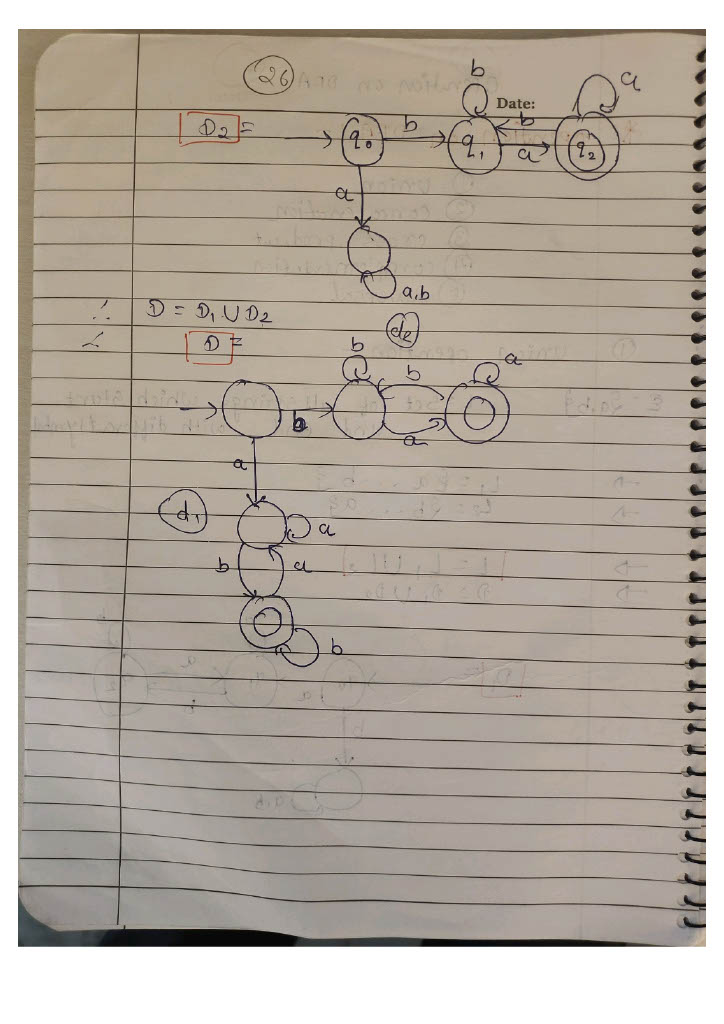 26
Date:
D2 = q0 b q1 b b a q2 a
a
a,b
∴ D = D1 ∪ D2
d2
D =
b b a
b a
a
d1 a
b a
b